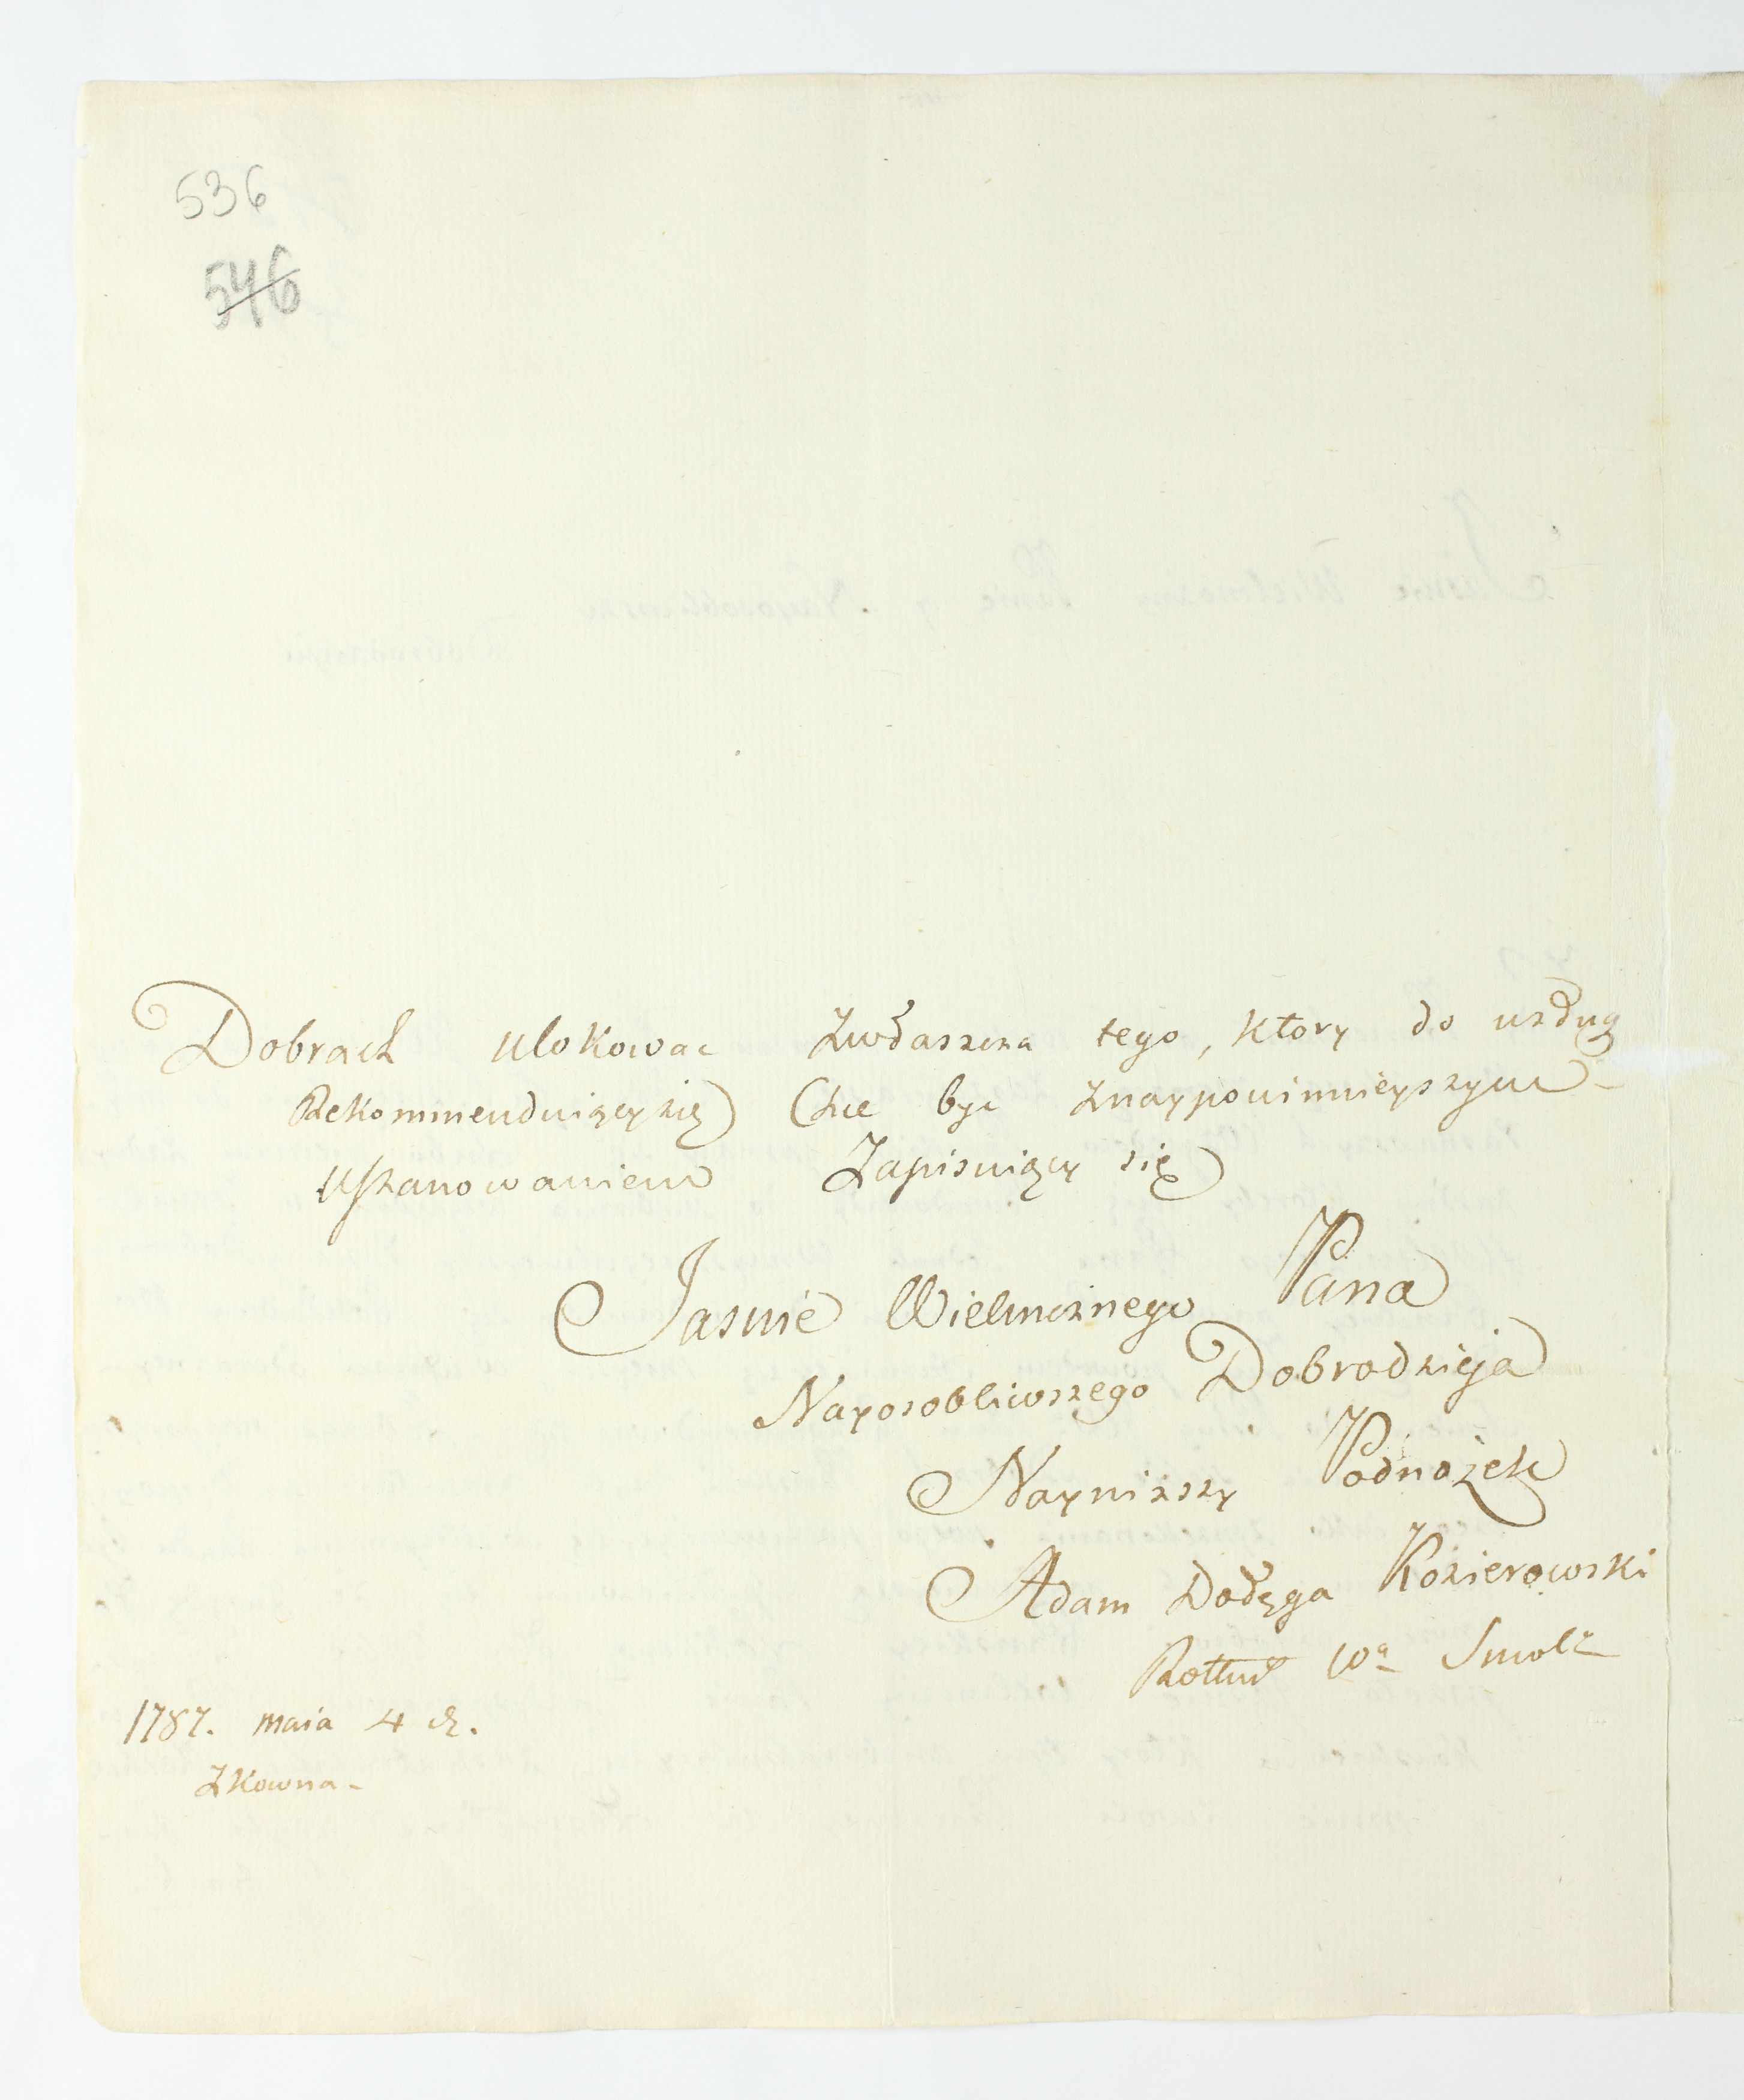 536
546
Dobrach ulokowac Zwłaszcza tego, ktory do usług
Rekommenduiący się chce byc Znaypowinnieyszym
Uszanowaniem Zapisuiący się
Jasnie Wielmoznego Pana
Nayosobliwszego Dobrodzieja
Naynizszy Podnożek
Adam Dołęga Kozierowski
Rottm Wa Smol
1787. maia 4 d.
Z Kowna